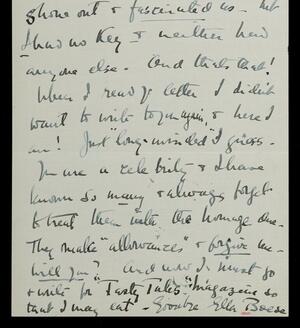 shone out & fascinated us - but
I had no key & neither had
anyone else. And thats that!
When I read yr letter I didn't
want to write to you again, & here I
am! Just "long-winded" I guess.
You are a celebrity & I have
known so many & always forget
to treat them with the homage due.
They make "allowances" & forgive me -
will you? And now I must go
& write for "Tasty Tales" magazine so
that I may eat! - Goodbye Ella Boese